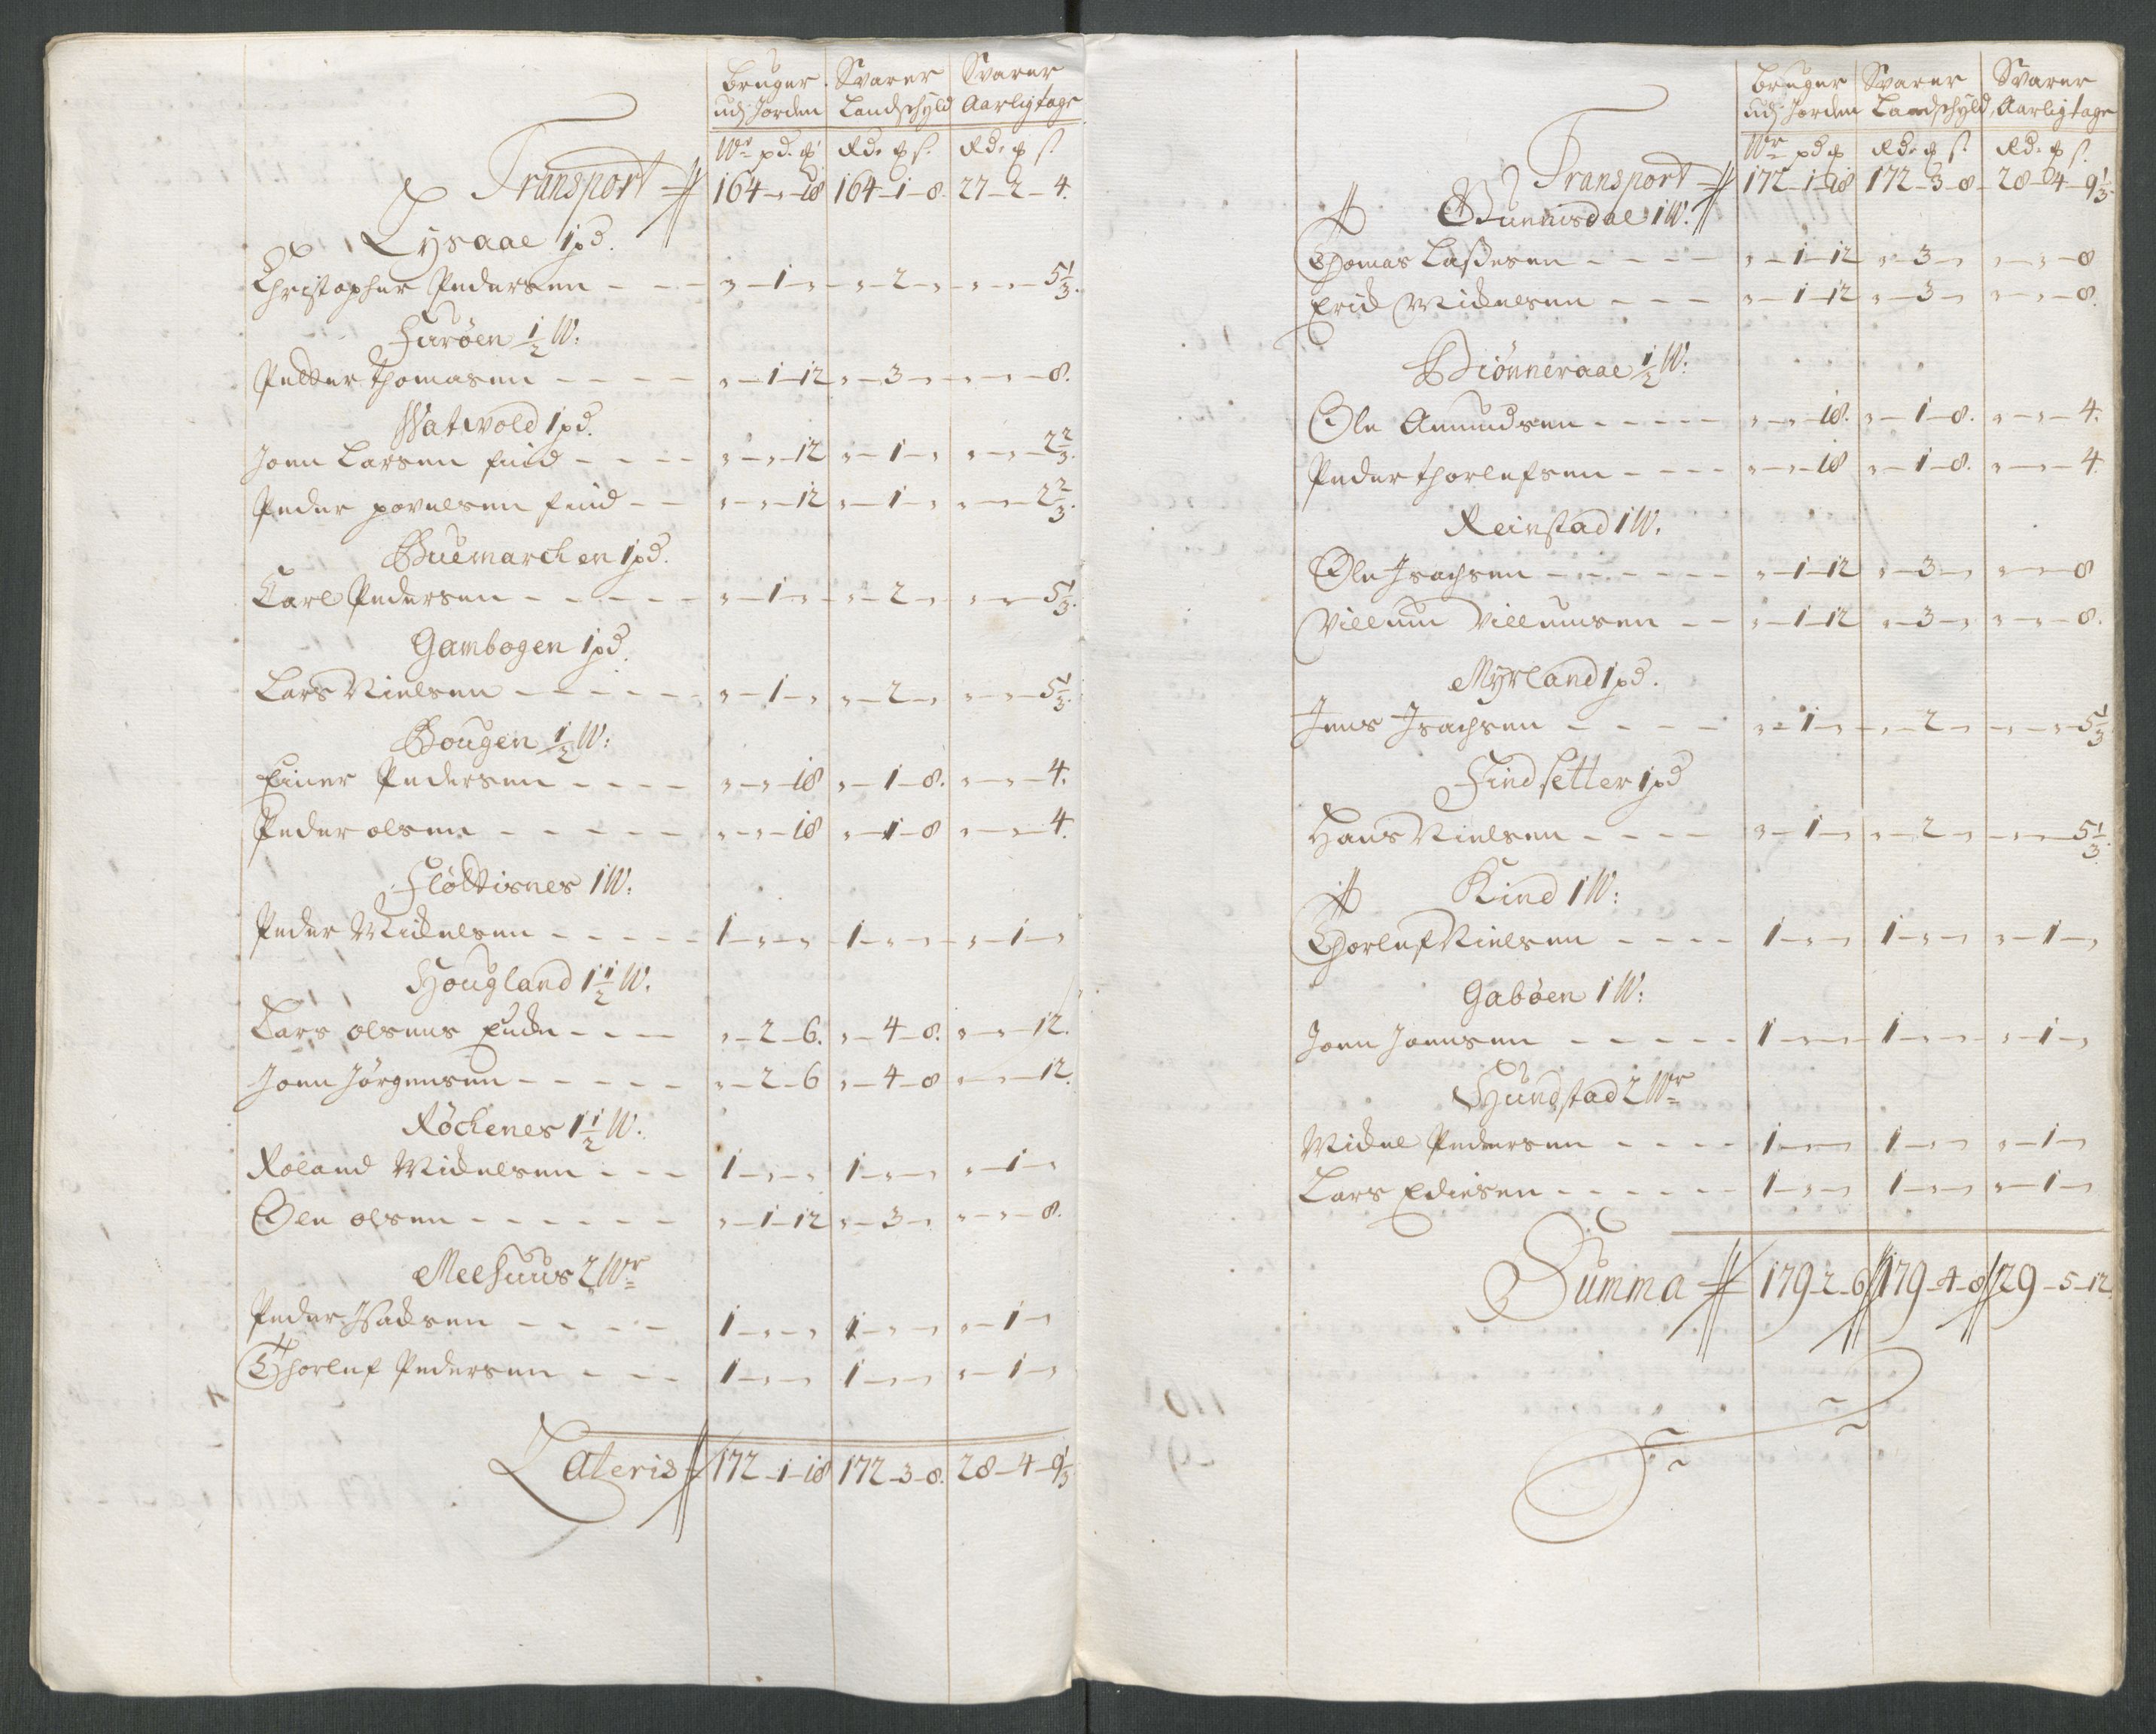 Bruger Svarer Svarer
udj Jorden Landschyld Aarligtage
Wr pd. ꝶ Rd. ꝶ s. Rd. ꝶ s.
Transport 164 - „ - 18 164 - 1 - 8. 27 - 2 - 4.
Lysaae 1 pd.
Christopher Pedersen - - - „ - 1 - „ „ - 2 - „ „ - „ - 5 1/3.
Furøen 1/2 W:
Petter Thomasen - - - - „ - 1 - 12 „ - 3 - „ „ - „ - 8.
Watwold 1 pd.
Joen Larsen find - - - - „ - „ - 12 „ - 1 - „ „ - „ - 2 2/3.
Peder povelsen find - - „ - „ - 12 „ - 1 - „ „ - „ - 2 2/3.
Buemarchen 1 pd.
Carl Pedersen - - - - - „ - 1 - „ „ - 2 - „ „ - „ - 5 1/3.
Gambogen 1 pd.
Lars Nielsen - - - - - „ - 1 - „ „ - 2 - „ „ - „ - 5 1/3.
Bougen 1/2 W:
Einer Pedersen - - - - „ - „ - 18 „ - 1 - 8. „ - „ - 4.
Peder olsen - - - - - „ - „ - 18 „ - 1 - 8 „ - „ - 4.
Fløttisnes 1 W:
Peder Michelsen - - - - - 1 - „ - „ 1 - „ - „ „ - 1 - „
Hougland 1 1/2 W.
Lars olsens Encke - - - - „ - 2 - 6. „ - 4 - 8. „ - „ - 12.
Joen Jørgensen - - - - - „ - 2 - 6 „ - 4 - 8 „ - „ - 12.
Røchenes 1 1/2 W.
Roland Michelsen - - - 1 - „ - „ 1 - „ - „ „ - 1 - „
Ole olsen - - - - - - „ - 1 - 12 „ - 3 - „ „ - „ - 8.
Meehuus 2 Wr
Peder Isacksen - - - - 1 - „ - „ 1 - „ - „ „ - 1 - „
Thorlef Pedersen - - - 1 - „ - „ 1 - „ - „ „ - 1 - „
Lateris 172 - 1 - 18 172 - 3 - 8. 28 - 4 - 9 1/3
Bruger Svarer Svarer
udj Jorden Landschyld Aarligtage
Wr pd ꝶ Rd. ꝶ s. Rd. ꝶ s.
Transport 172 - 1 - 18 172 - 3 - 8 28 - 4 - 9 1/3.
Gunnisdal 1 W:
Thomas Lassesen - - - - „ - 1 - 12 „ - 3 - „ „ - „ - 8
Erick Michelsen - - - „ - 1 - 12 „ - 3 - „ „ - „ - 8.
Biønneraae 1/2 W:
Ole Amundsen - - - - - „ - „ - 18. „ - 1 - 8. „ - „ - 4.
Peder Thorlefsen - - - - „ - „ - 18 „ - 1 - 8. „ - „ - 4.
Reinstad 1 W.
Ole Isachsen - - - - - - „ - 1 - 12 „ - 3 - „ „ - „ - 8
Villum Villumsen - - „ - 1 - 12 „ - 3 - „ „ - „ - 8.
Myrland 1 pd.
Jens Isachsen - - - - „ - 1 - „ „ - 2 - „ „ - „ - 5 1/3
Findsetter 1 pd
Hans Nielsen - - - - „ - 1 - „ „ - 2 - „ „ - „ - 5 1/3.
Kind 1 W:
Thorlef Nielsen - - - - 1 - „ - „ 1 - „ - „ „ - 1 - „
Gabøen 1 W:
Joen Joensen - - - - - 1 - „ - „ 1 - „ - „ „ - 1 - „
Hundstad 2 Wr
Michel Pedersen - - - - 1 - „ - „ 1 - „ - „ „ - 1 - „
Lars Ediesen - - - - - - 1 - „ - „ 1 - „ - „ „ - 1 - „
Summa 179 - 2 - 6 179 - 4 - 8 29 - 5 - 12.